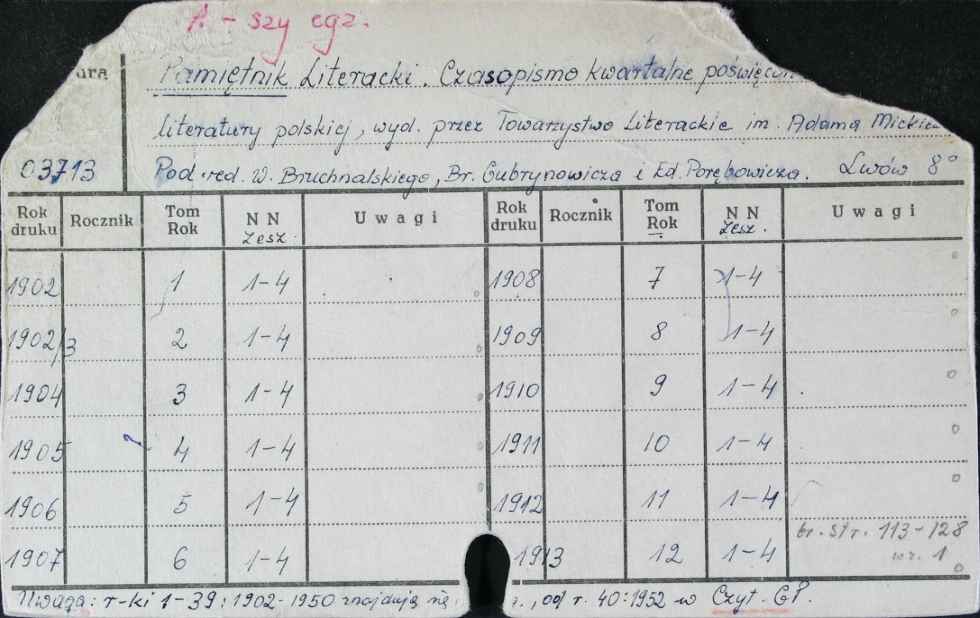 1 - szy egz.
Pamiętnik Literacki. Czasopismo kwartalne
literatury polskiej, wyd. przez Towarzystwo Literackie im. Adama
03713 Pod red. W. Bruchnalskiego, Br. Gubrynowicza i Ed. Porębowicza. Lwów 8°
Rok druku Rocznik Tom Rok NN zesz. Uwagi Rok druku Rocznik Tom Rok NN zesz. Uwagi
1902 1 1-4 1908 7 1-4
1902/3 2 1-4 1909 8 1-4
1904 3 1-4 1910 9 1-4
1905 4 1-4 1911 10 1-4
1906 5 1-4 1912 11 1-4
1907 6 1-4 1913 12 1-4 br. str. 113-128
1
Uwaga: r-ki 1-39: 1902-1950 znajdują się , od r. 40:1952 w Czyt. GP.